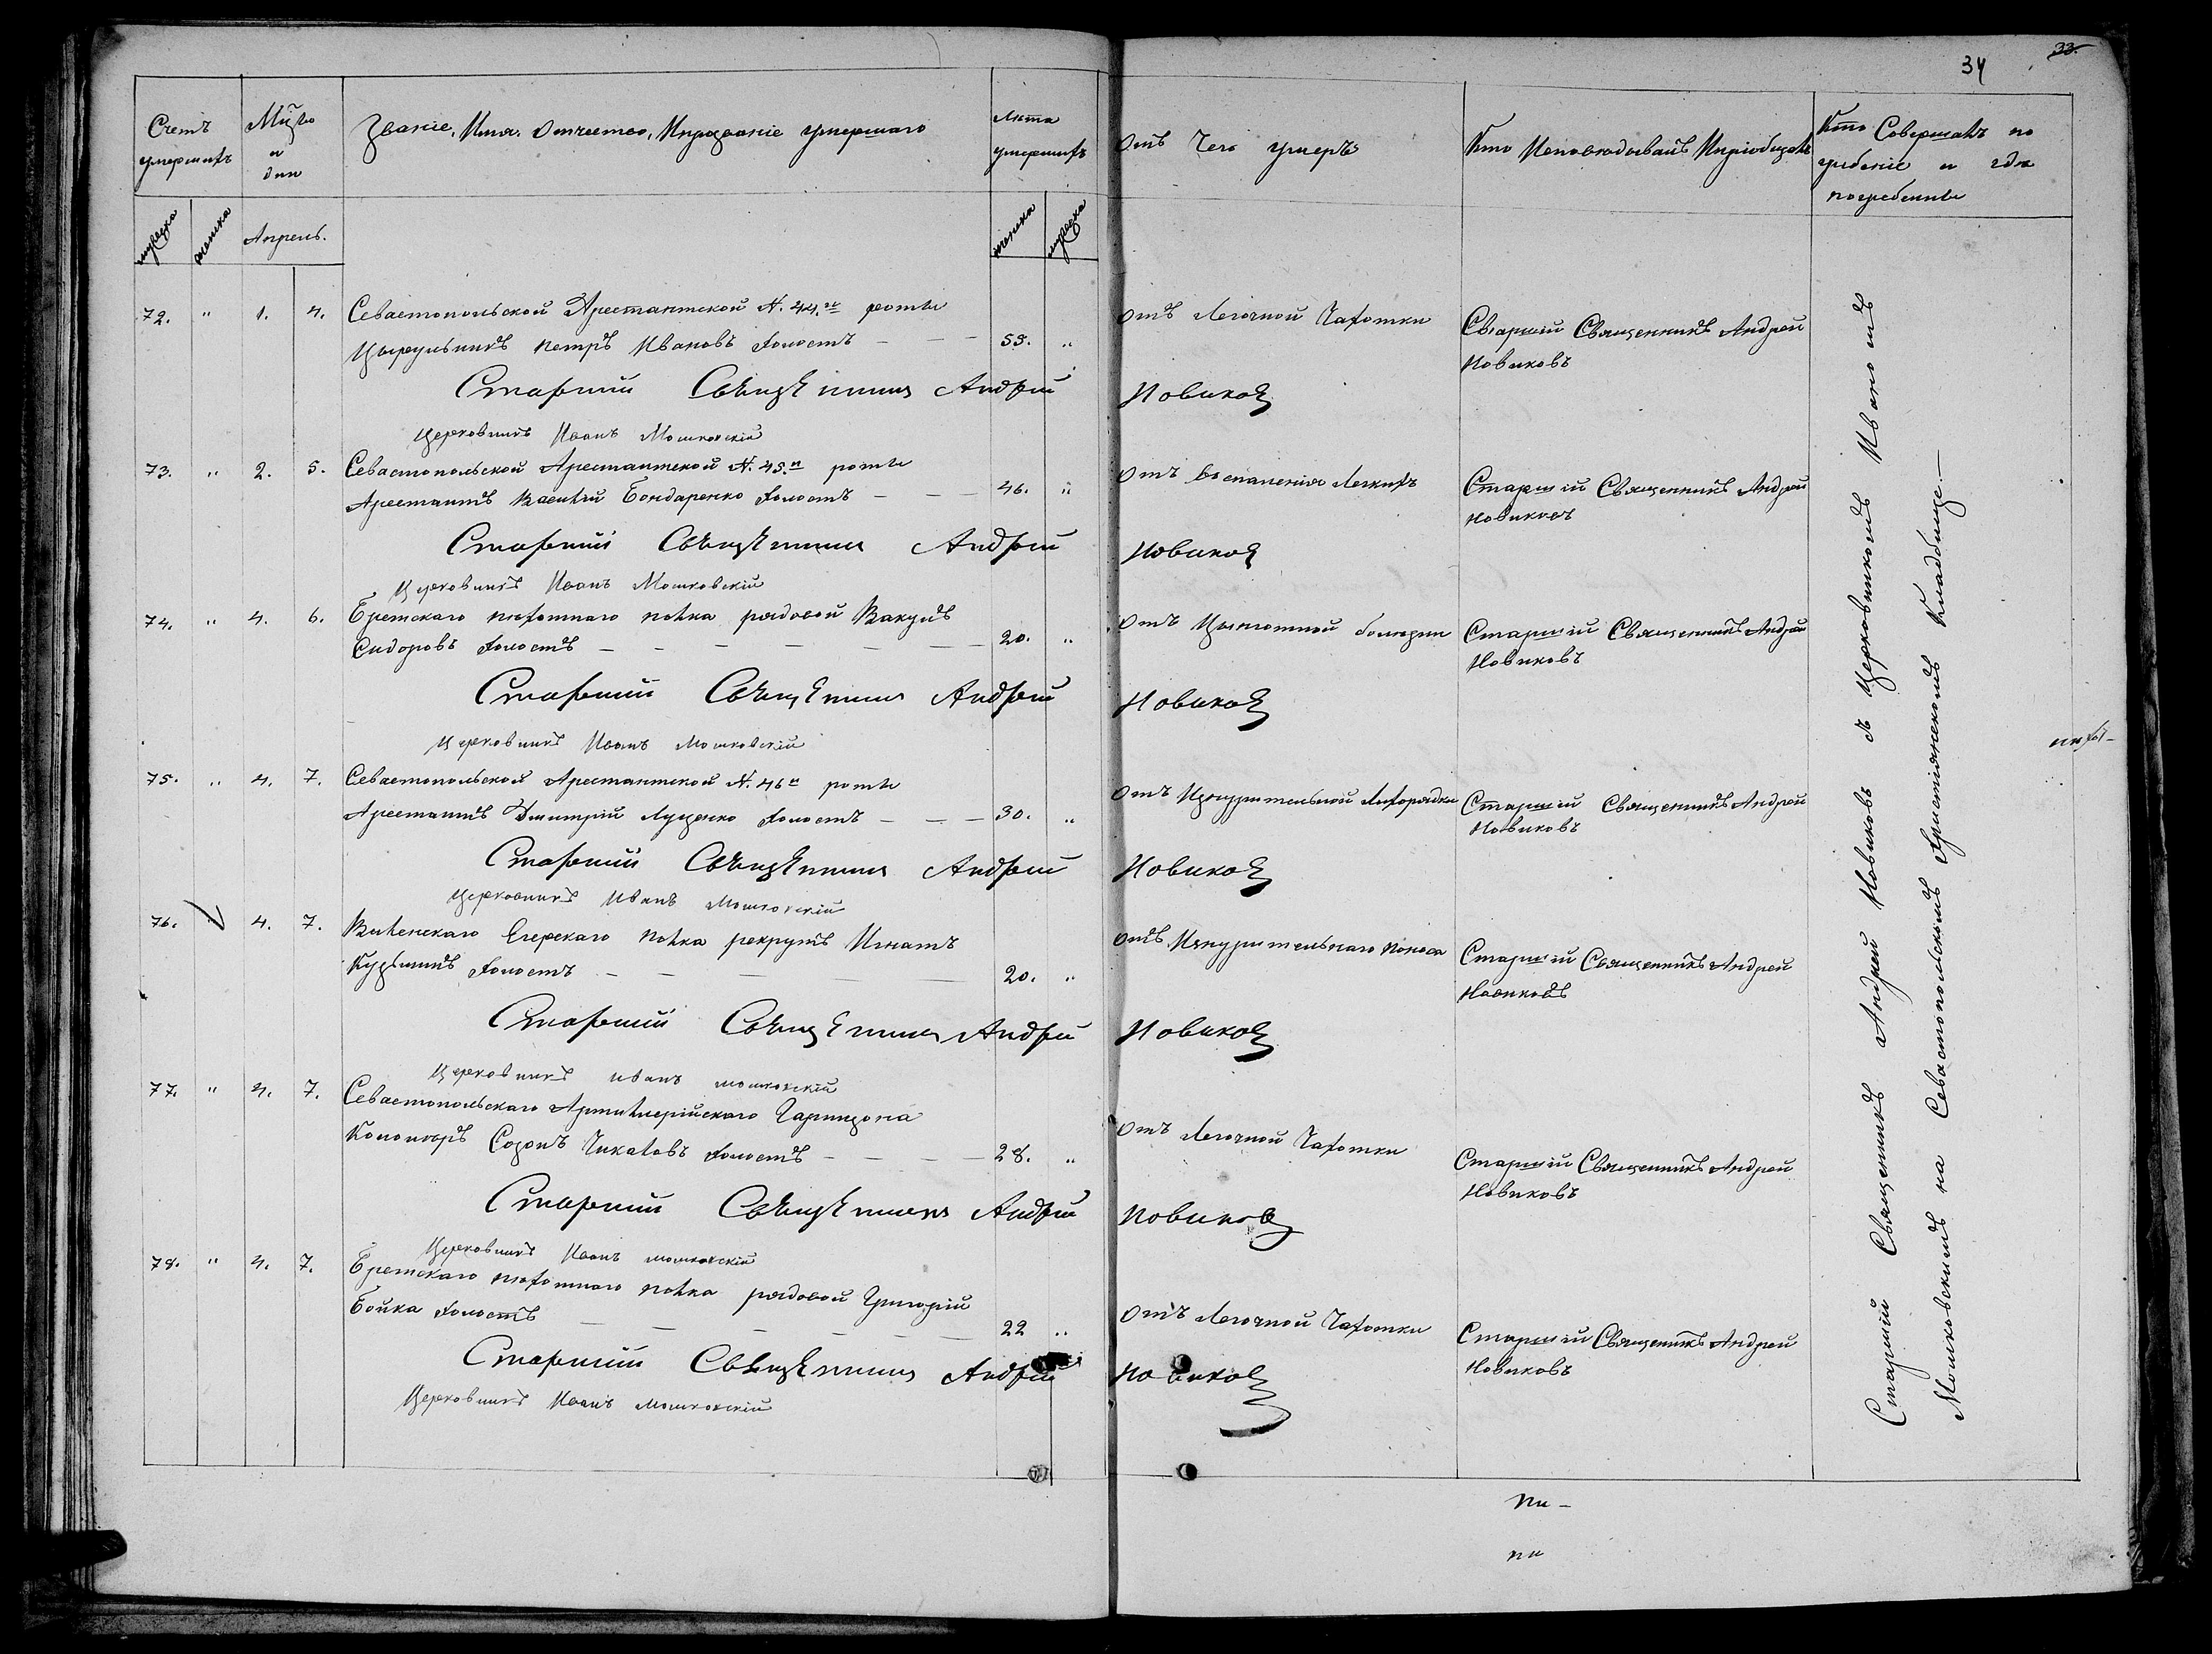 34
33.
Счетъ умершихъ
Мѣсяцъ и дни
Званіе, Имя, Отчество, И прозваніе умершаго
Лѣта умершихъ
Отъ Чего умеръ
Кто Исповѣдывалъ И пріобщалъ
Кто Совершалъ погребеніе и гдѣ погребенны
мужеска
женска
Апрель.
72. " 1. 4. Севастопольской Арестантской №. 44.й роты
Цырульникъ Петръ Ивановъ холостъ — — 55. "
Отъ Легочной Чахотки
Старшій Священникъ Андрей
Новиковъ
Старший Священникъ Андрей Новиковъ
Церковникъ Иванъ Мошковскій
73. " 2. 5. Севастопольской Арестантской №. 45.й роты
Арестантъ Василій Бондаренко холостъ — — 46. "
Отъ Воспаленія Легкихъ
Старшій Священникъ Андрей
Новиковъ
Старший Священникъ Андрей Новиковъ
Церковникъ Иванъ Мошковскій
74. " 4. 6. Брестскаго пехотнаго полка рядовой Вакулъ
Сидоровъ холостъ — — — — — — 20. "
Отъ Цынготной болезни
Старшій Священникъ Андрей
Новиковъ
Старший Священникъ Андрей Новиковъ
Церковникъ Иванъ Мошковскій
75. " 4. 7. Севастопольской Арестантской №. 46й роты
Арестантъ Дмитрій Луценко холостъ — — — 30. "
Отъ Изнурительной Лихорадки
Старшій Священникъ Андрей
Новиковъ
Старший Священникъ Андрей Новиковъ
Церковникъ Иванъ Мошковскій
76. " 4. 7. Виленскаго Егерскаго полка рекрутъ Игнатъ
Кузьминъ холостъ — — — — 20. "
Отъ Изнурительнаго поноса
Старшій Священникъ Андрей
Новиковъ
Старший Священникъ Андрей Новиковъ
Церковникъ Иванъ Мошковскій
77. " 4. 7. Севастопольскаго Артиллерійскаго Гарнизона
Канониръ Созонъ Чикаловъ холостъ — — — — 28. "
Отъ Легочной Чахотки
Старшій Священникъ Андрей
Новиковъ
Старший Священникъ Андрей Новиковъ
Церковникъ Иванъ Мошковскій
78. " 4. 7. Брестскаго пехотнаго полка рядовой Григорій
Бойка холостъ — — — — — — 22 "
Отъ Легочной Чахотки
Старшій Священникъ Андрей
Новиковъ
Старший Священникъ Андрей Новиковъ
Церковникъ Иванъ Мошковскій
Старшій Священникъ Андрей Новиковъ съ Церковникомъ Иваномъ
Мошковскимъ на Севастопольскомъ Христіянскомъ Кладбище.—